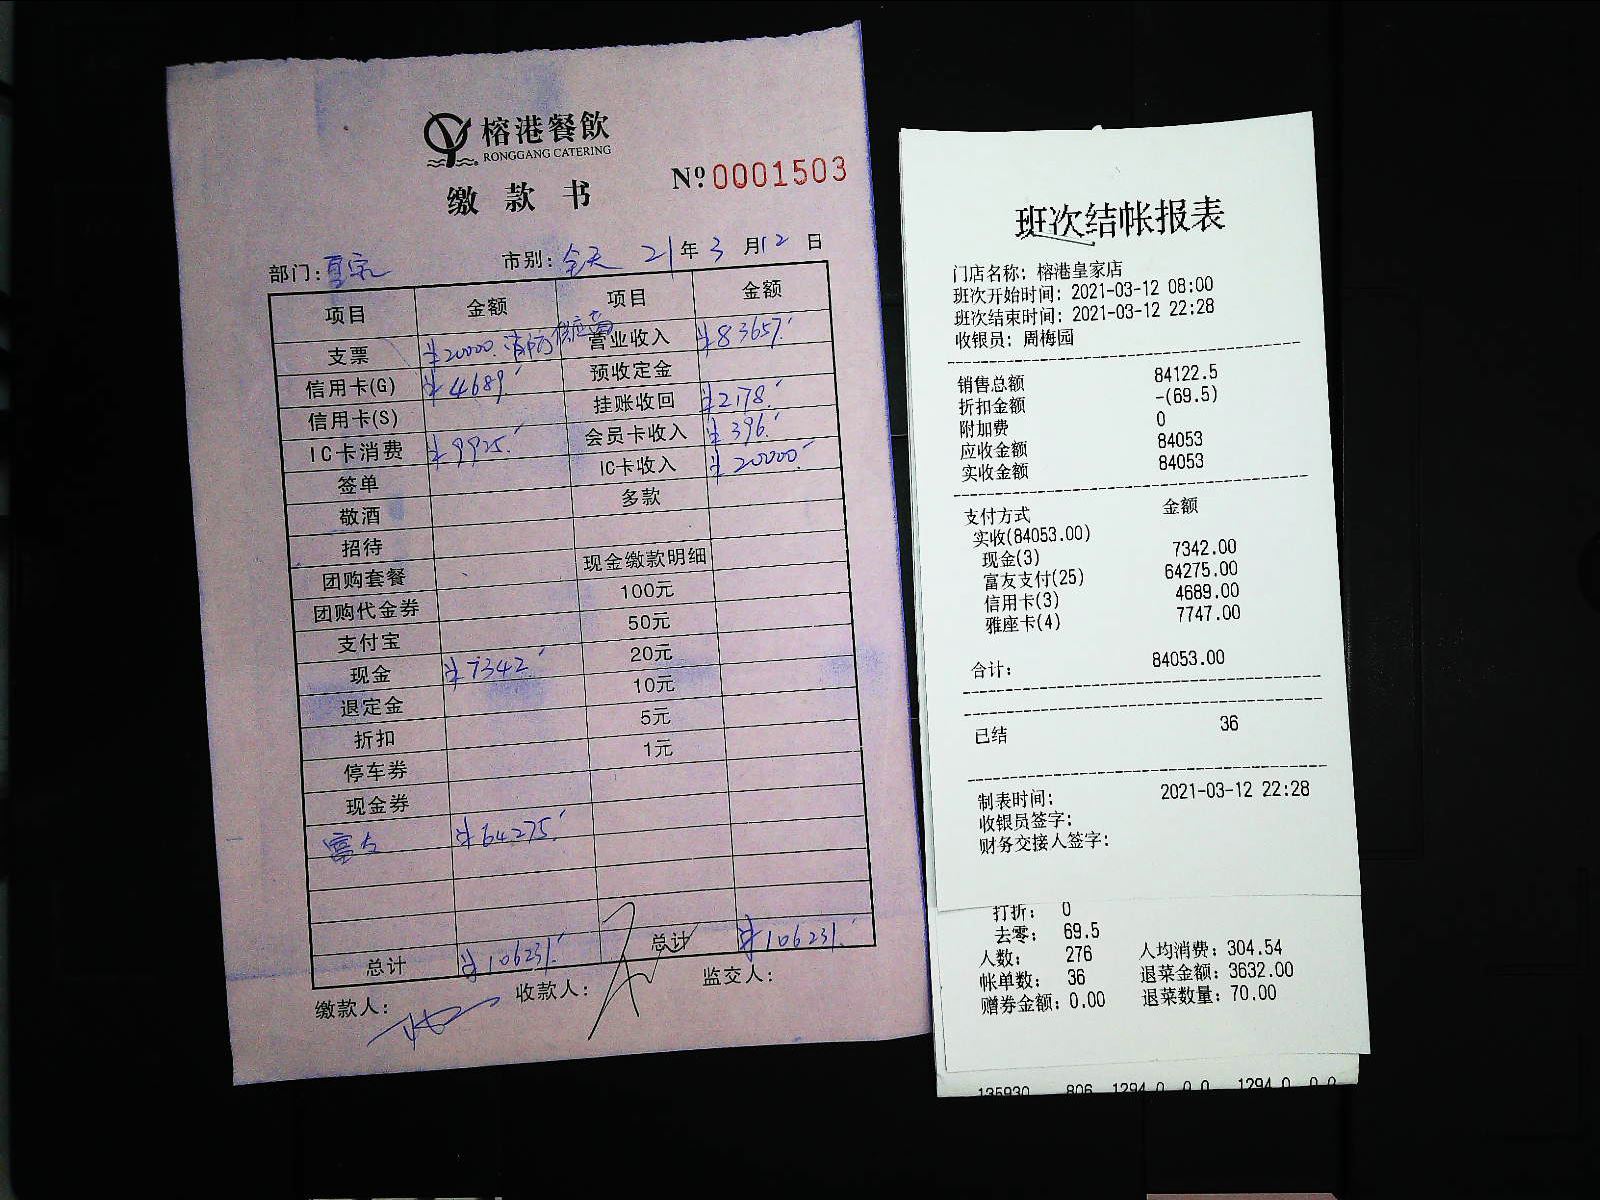 榕港餐飲
RONGGANG CATERING
缴款书
Nº 0001503
部门: 皇家 市别: 全天 21年3月12日
项目 金额 项目 金额
支票 ¥20000. 消防供应商 营业收入 ¥83657.
信用卡(G) ¥4689. 预收定金
信用卡(S) 挂账收回 ¥2178.
IC卡消费 ¥9925. 会员卡收入 ¥396.
签单 IC卡收入 ¥20000.
敬酒 多款
招待
团购套餐 现金缴款明细
团购代金券 100元
支付宝 50元
现金 ¥7342. 20元
退定金 10元
折扣 5元
停车券 1元
现金券
富友 ¥64275.
总计 ¥106231. 总计 ¥106231.
缴款人: 收款人: 监交人:
班次结帐报表
门店名称: 榕港皇家店
班次开始时间: 2021-03-12 08:00
班次结束时间: 2021-03-12 22:28
收银员: 周梅园
销售总额 84122.5
折扣金额 -(69.5)
附加费 0
应收金额 84053
实收金额 84053
支付方式 金额
实收(84053.00)
现金(3) 7342.00
富友支付(25) 64275.00
信用卡(3) 4689.00
雅座卡(4) 7747.00
合计: 84053.00
已结 36
制表时间: 2021-03-12 22:28
收银员签字:
财务交接人签字:
打折: 0
去零: 69.5
人数: 276 人均消费: 304.54
帐单数: 36 退菜金额: 3632.00
赠券金额: 0.00 退菜数量: 70.00
135930 806 1294.0 0.0 1294.0 0.0